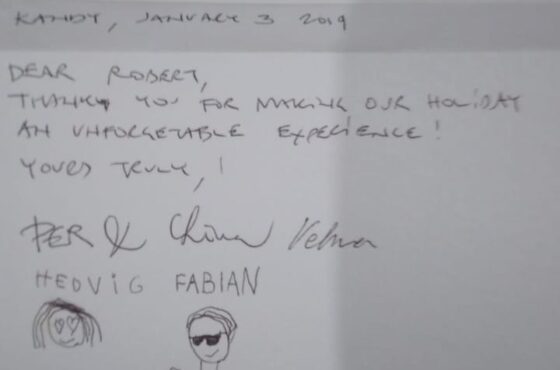 KANDY, JANUARY 3 2019
DEAR ROBERT,
THANK YOU FOR MAKING OUR HOLIDAY
AN UNFORGETABLE EXPERIENCE!
YOURS TRULY,
PER &
HEDVIG FABIAN